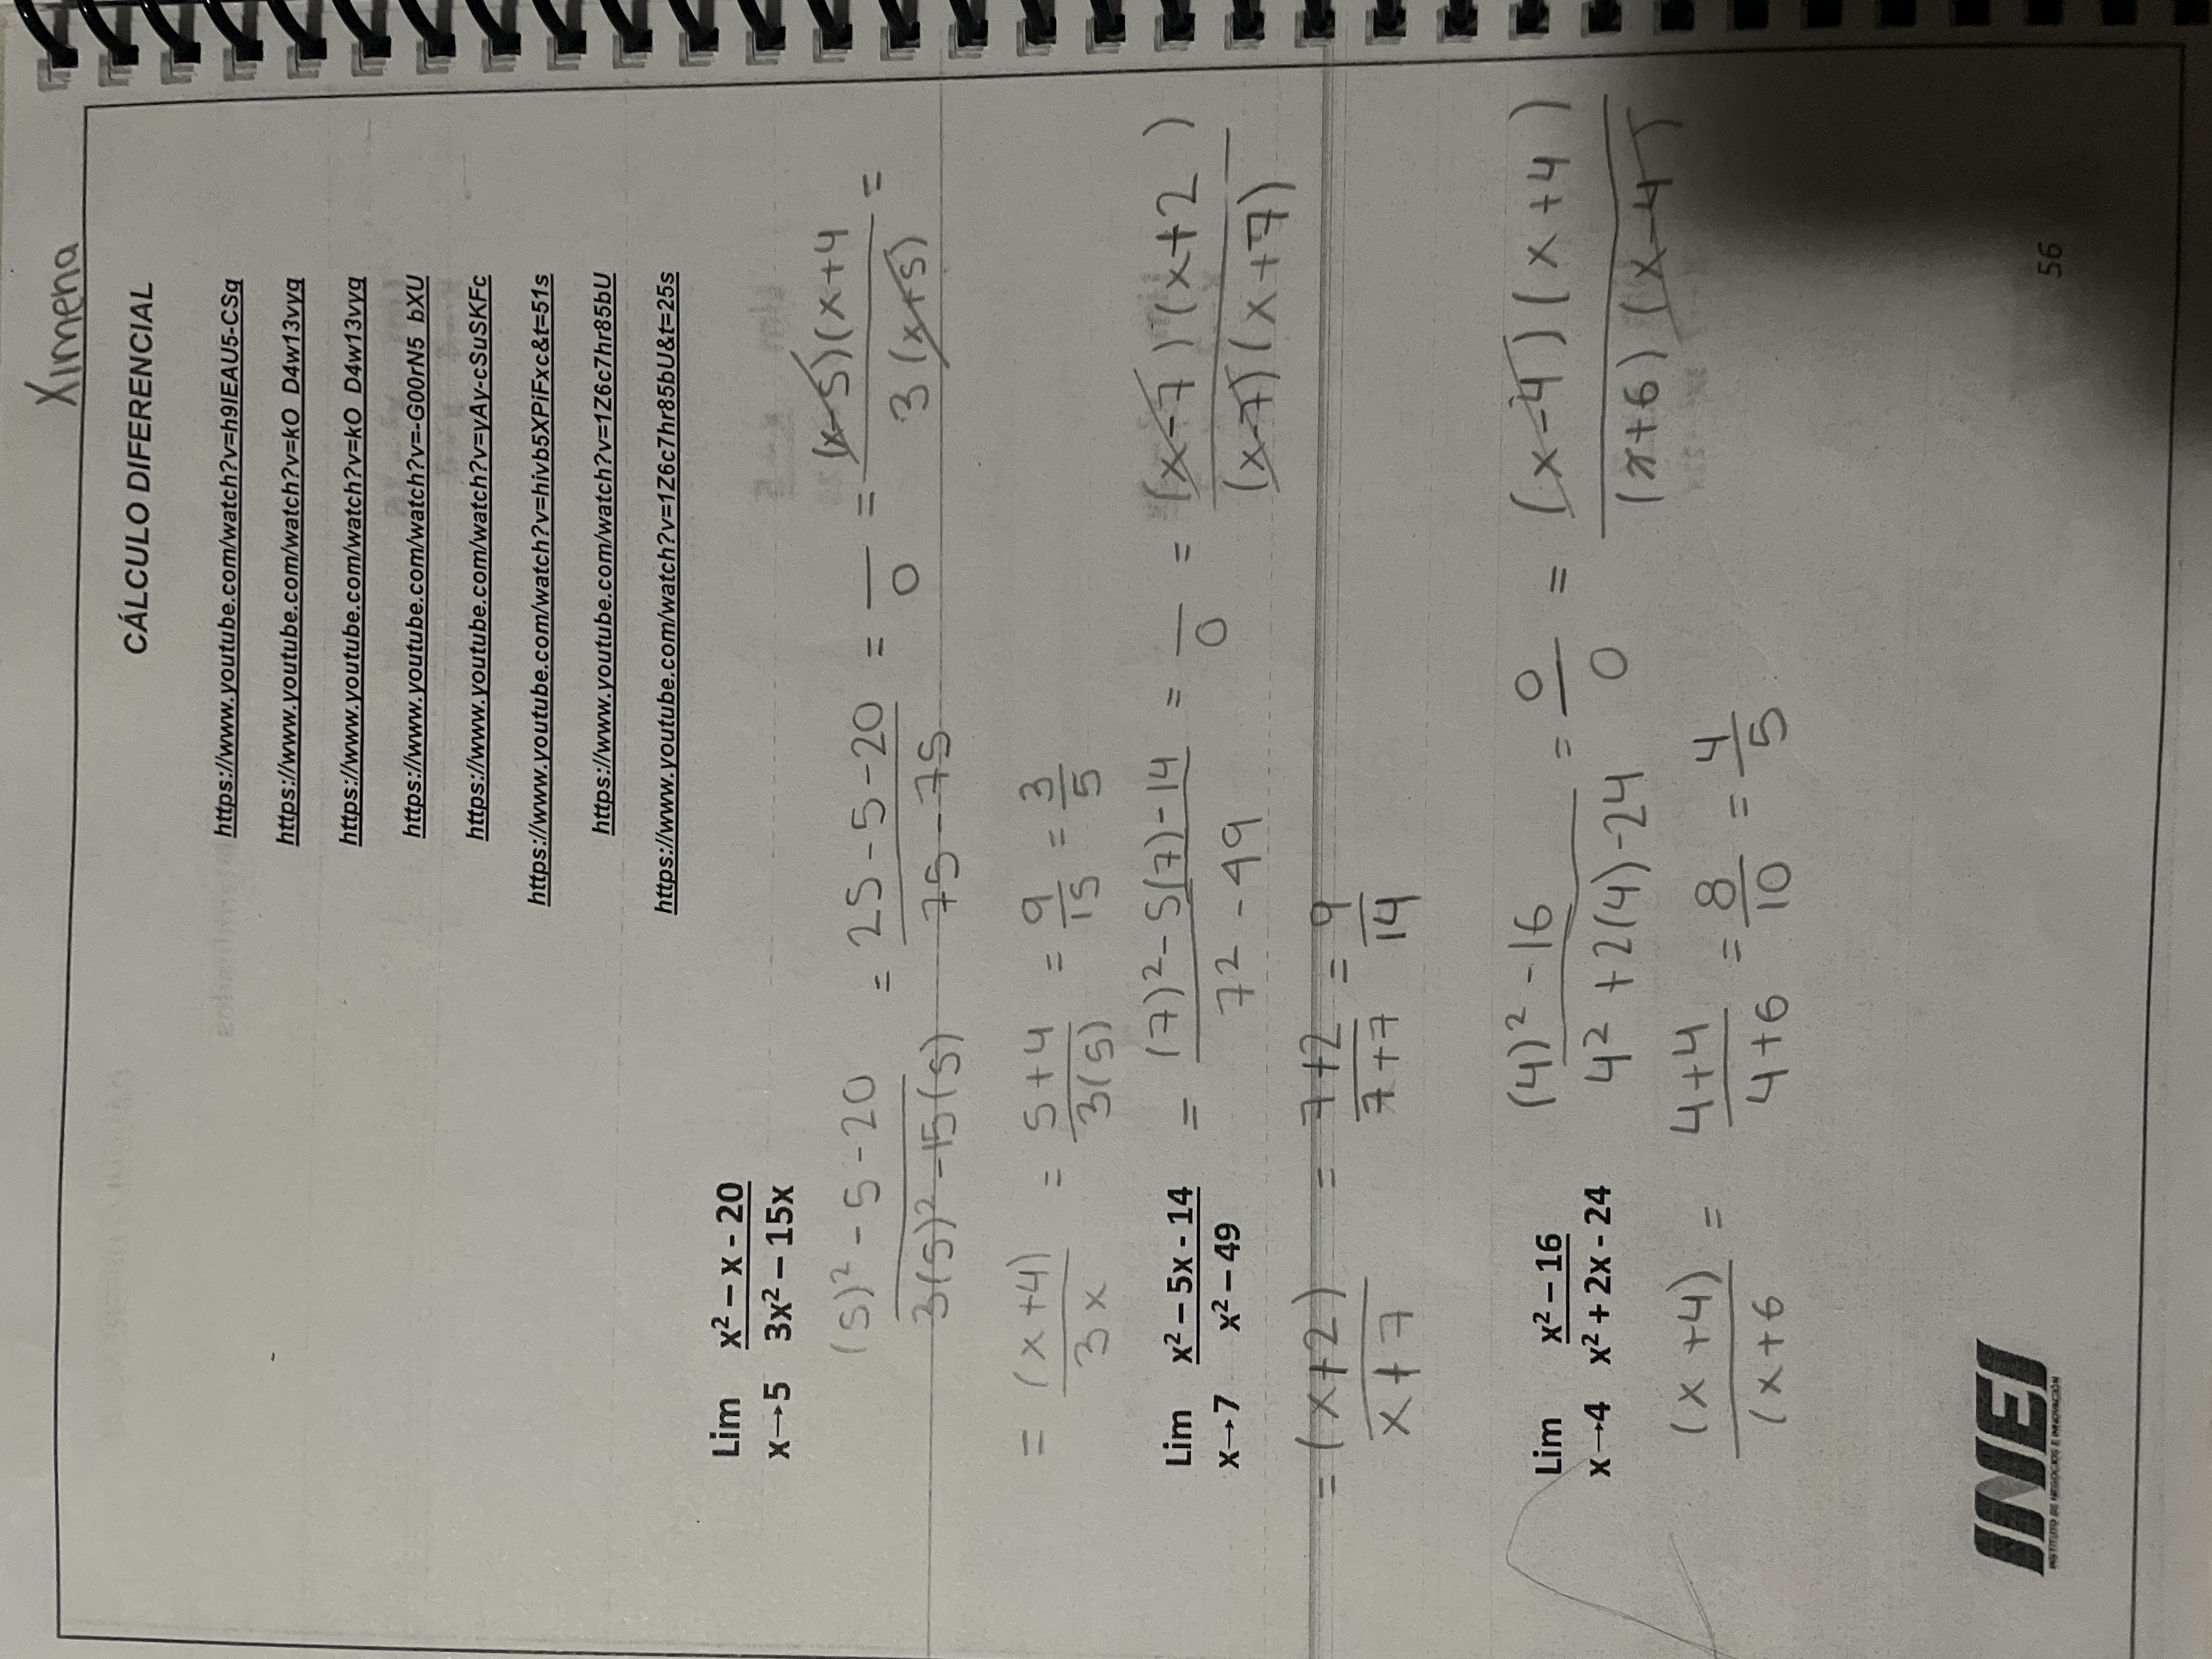 Ximena
CÁLCULO DIFERENCIAL
https://www.youtube.com/watch?v=h9IEAU5-CSg
https://www.youtube.com/watch?v=kO_D4w13vvg
https://www.youtube.com/watch?v=kO_D4w13vvg
https://www.youtube.com/watch?v=-G00rN5_bXU
https://www.youtube.com/watch?v=yAy-cSuSKFc
https://www.youtube.com/watch?v=hivb5XPiFxc&t=51s
https://www.youtube.com/watch?v=1Z6c7hr85bU
https://www.youtube.com/watch?v=1Z6c7hr85bU&t=25s
Lim x² – x - 20
x→5 3x² – 15x
(5)² - 5 - 20 = 25 - 5 - 20 = — = (x-5)(x+4 =
3(5)² - 15(5) 75 - 75 0 3(x+5)
= (x+4) = 5+4 = 9 = 3
3x 3(5) 15 5
Lim x² – 5x - 14 = (7)² - 5(7) - 14 = — = (x-7)(x+2)
x→7 x² – 49 7² - 49 0 (x-7)(x+7)
= (x+2) = 7+2 = 9
x+7 7+7 14
Lim x² – 16 (4)² - 16 = 0 = (x-4)(x+4)
x→4 x² + 2x - 24 4² + 2(4) - 24 0 (x+6)(x-4)
(x+4) = 4+4 = 8 = 4
(x+6 4+6 10 5
INEI
INSTITUTO DE NEGOCIOS E INNOVACIÓN
56